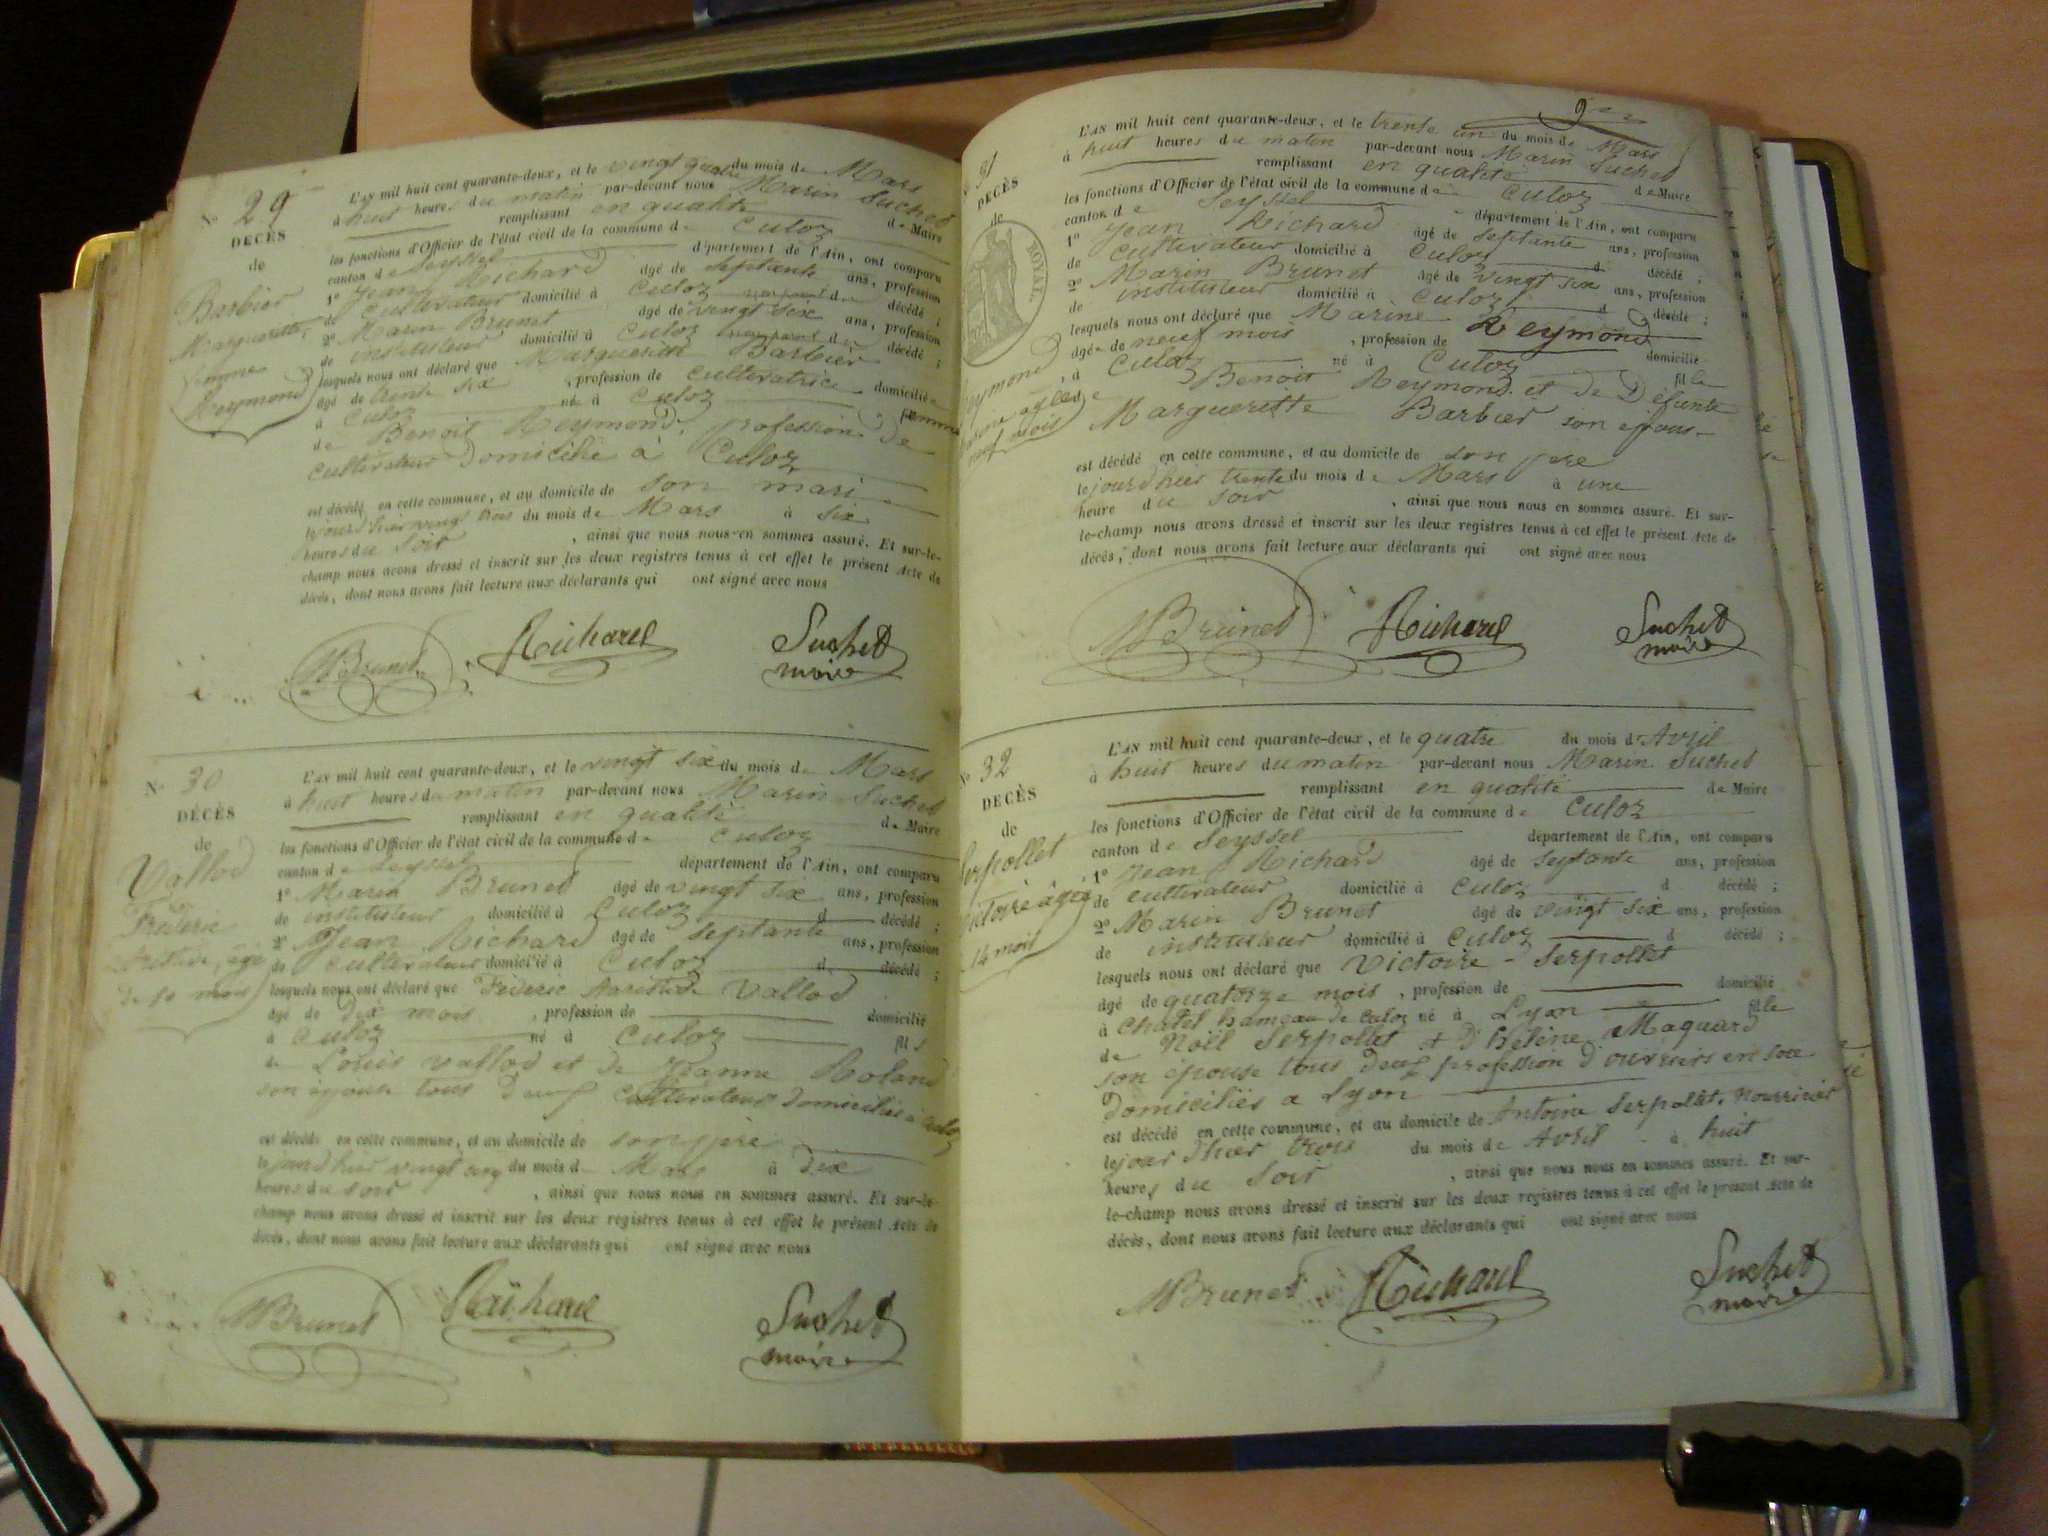 N° 29
DÉCÈS
de
Barbier
Margueritte,
femme
Reymond
L'AN mil huit cent quarante-deux, et le vingt quatre du mois de Mars
à huit heures du matin par-devant nous Marin Suchet
remplissant en qualité de Maire
les fonctions d'Officier de l'état civil de la commune de Culoz
canton de Seyssel département de l'Ain, ont comparu
1° Jean Richard âgé de septante ans, profession
de cultivateur domicilié à Culoz d décédé ;
2° Marin Brunet âgé de vingt six ans, profession
de instituteur domicilié à Culoz d décédé ;
lesquels nous ont déclaré que Marguerite Barbier
âgé de trente six , profession de cultivatrice domicilié
à Culoz né à Culoz femme
de Benoit Reymond, profession de
cultivateur domicilié à Culoz
est décédé en cette commune, et au domicile de son mari
le jour d'hier vingt trois du mois de Mars à six
heures du soir , ainsi que nous nous-en sommes assuré. Et sur-le-
champ nous avons dressé et inscrit sur les deux registres tenus à cet effet le présent Acte de
décès, dont nous avons fait lecture aux déclarants qui ont signé avec nous
MBrunet Richard Suchet
maire
N° 30
DÉCÈS
de
Vallod
Frédéric
Aristide, âgé
de 10 mois
L'AN mil huit cent quarante-deux, et le vingt six du mois de Mars
à huit heures du matin par-devant nous Marin Suchet
remplissant en qualité de Maire
les fonctions d'Officier de l'état civil de la commune de Culoz
canton de Seyssel département de l'Ain, ont comparu
1° Marin Brunet âgé de vingt six ans, profession
de instituteur domicilié à Culoz d décédé ;
2° Jean Richard âgé de septante ans, profession
de cultivateur domicilié à Culoz d décédé ;
lesquels nous ont déclaré que Frédéric Aristide Vallod
âgé de dix mois , profession de domicilié
à Culoz né à Culoz fils
de Louis Vallod et de Jeanne Roland
son épouse tous deux cultivateurs domiciliés à Culoz
est décédé en cette commune, et au domicile de son père
le jour d'hier vingt cinq du mois de Mars à dix
heures du soir , ainsi que nous nous en sommes assuré. Et sur-le-
champ nous avons dressé et inscrit sur les deux registres tenus à cet effet le présent Acte de
décès, dont nous avons fait lecture aux déclarants qui ont signé avec nous
MBrunet Richard Suchet
maire
9
31
DÉCÈS
de
ROYAL
Reymond
Marine âgée de
neuf mois
L'AN mil huit cent quarante-deux, et le trente un du mois de Mars
à huit heures du matin par-devant nous Marin Suchet
remplissant en qualité de Maire
les fonctions d'Officier de l'état civil de la commune de Culoz
canton de Seyssel département de l'Ain, ont comparu
1° Jean Richard âgé de septante ans, profession
de cultivateur domicilié à Culoz d décédé ;
2° Marin Brunet âgé de vingt six ans, profession
de instituteur domicilié à Culoz d décédé ;
lesquels nous ont déclaré que Marine Reymond
âgé de neuf mois , profession de domicilié
à Culoz né à Culoz fille
de Benoit Reymond et de Défunte
Marguerite Barbier son épouse
est décédé en cette commune, et au domicile de son père
le jour d'hier trente du mois de Mars à une
heure du soir , ainsi que nous nous en sommes assuré. Et sur-
le-champ nous avons dressé et inscrit sur les deux registres tenus à cet effet le présent Acte de
décès, dont nous avons fait lecture aux déclarants qui ont signé avec nous
MBrunet Richard Suchet
maire
N° 32
DÉCÈS
de
Serpollet
Victoire âgée
14 mois
L'AN mil huit cent quarante-deux, et le quatre du mois d'Avril
à huit heures du matin par-devant nous Marin Suchet
remplissant en qualité de Maire
les fonctions d'Officier de l'état civil de la commune de Culoz
canton de Seyssel département de l'Ain, ont comparu
1° Jean Richard âgé de septante ans, profession
de cultivateur domicilié à Culoz d décédé ;
2° Marin Brunet âgé de vingt six ans, profession
de instituteur domicilié à Culoz d décédé ;
lesquels nous ont déclaré que Victoire Serpollet
âgé de quatorze mois , profession de domicilié
à Chatel hameau de Culoz né à Lyon fille
de Noël Serpollet et d'hélène Maquard
son épouse tous deux profession d'ouvriers en soie
domiciliés a Lyon
est décédé en cette commune, et au domicile de Antoine Serpollet, nourricier
le jour d'hier trois du mois de Avril à huit
heures du soir , ainsi que nous nous en sommes assuré. Et sur-
le-champ nous avons dressé et inscrit sur les deux registres tenus à cet effet le présent Acte de
décès, dont nous avons fait lecture aux déclarants qui ont signé avec nous
MBrunet Richard Suchet
maire